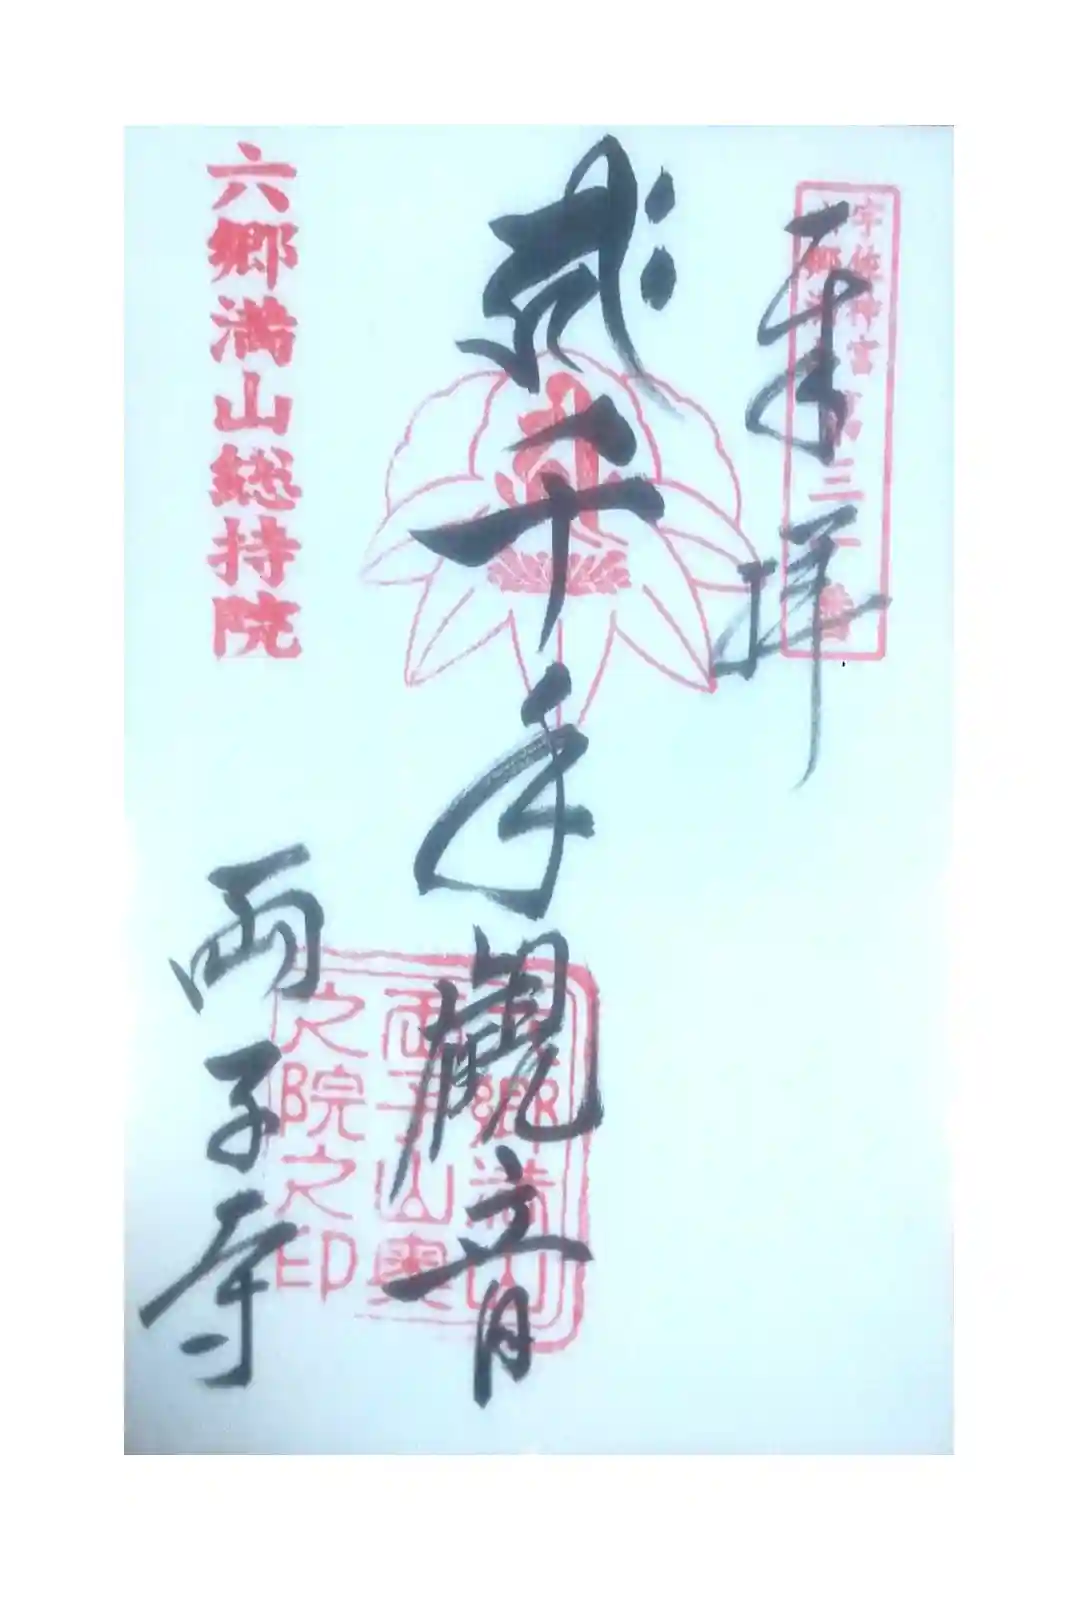 奉拝
宇佐神宮
六郷満山
三十三番
千手観音
六郷満山総持院
両子寺
六郷満山
両子山奥
之院之印